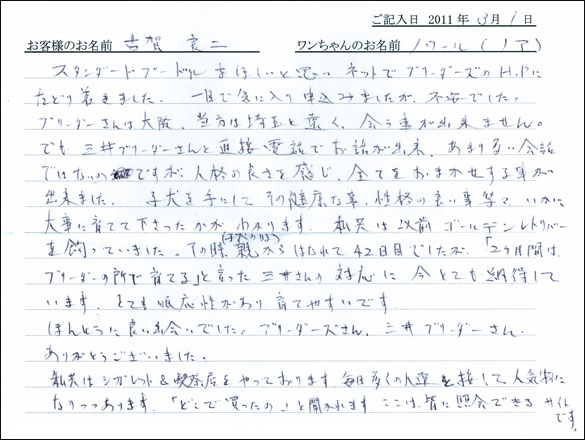 ご記入日 2011年 3月 1日
お客様のお名前 古賀 良二 ワンちゃんのお名前 ノワール(ノア)
スタンダードプードルをほしいと思い ネットでブリーダーズのH.Pに
たどり着きました。一目で気に入り申込みましたが、不安でした。
ブリーダーさんは大阪、当方は埼玉と遠く、会う事が出来ません。
でも 三井ブリーダーさんと直接電話でお話が出来、あまり多い会話
ではないのですが、人格の良さを感じ、全てをおまかせする事が
出来ました。 子犬を手にして その健康な事、性格の良い事等で いかに
大事に育てて下さったかが わかります。私共は以前 ゴールデンレトリバー
を飼っていました。その時 親からはなれて42日目でしたが、「2ヶ月間は
ブリーダーの所で育てる」と言った 三井さんの 対応に 今 とても納得して
います。とても順応性があり 育てやすいです
ほんとうに良い出会いでした。ブリーダーズさん、三井ブリーダーさん、
ありがとうございました。
私共はシガレット&喫茶店をやっております 毎日多くの人達と接して人気物に
なりつつあります。「どこで買ったの」と聞かれます ここは、皆に照会できるサイト
です。